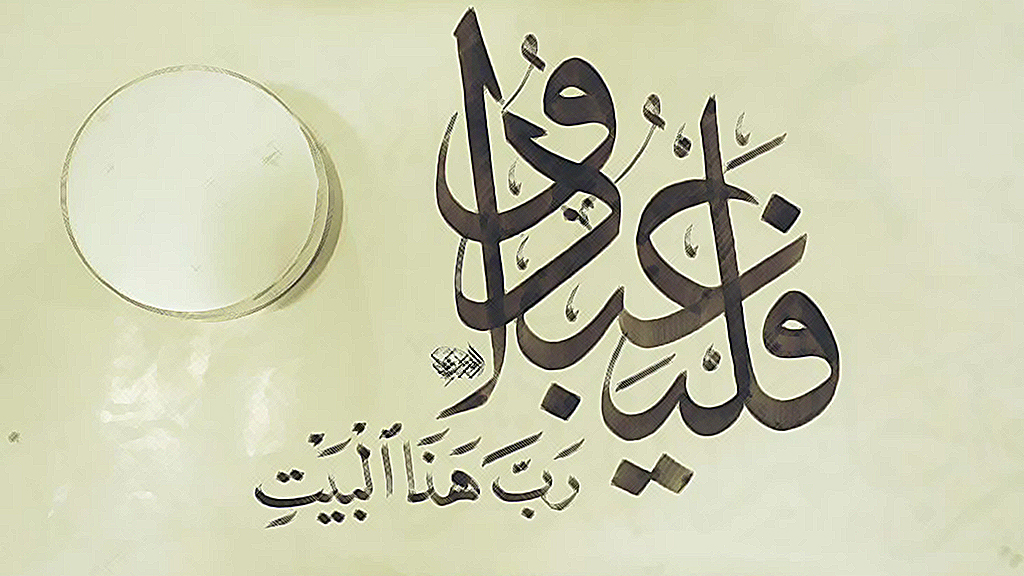 فَلْيَعْبُدُوا
رَبَّ هَذَا ٱلْبَيْتِ